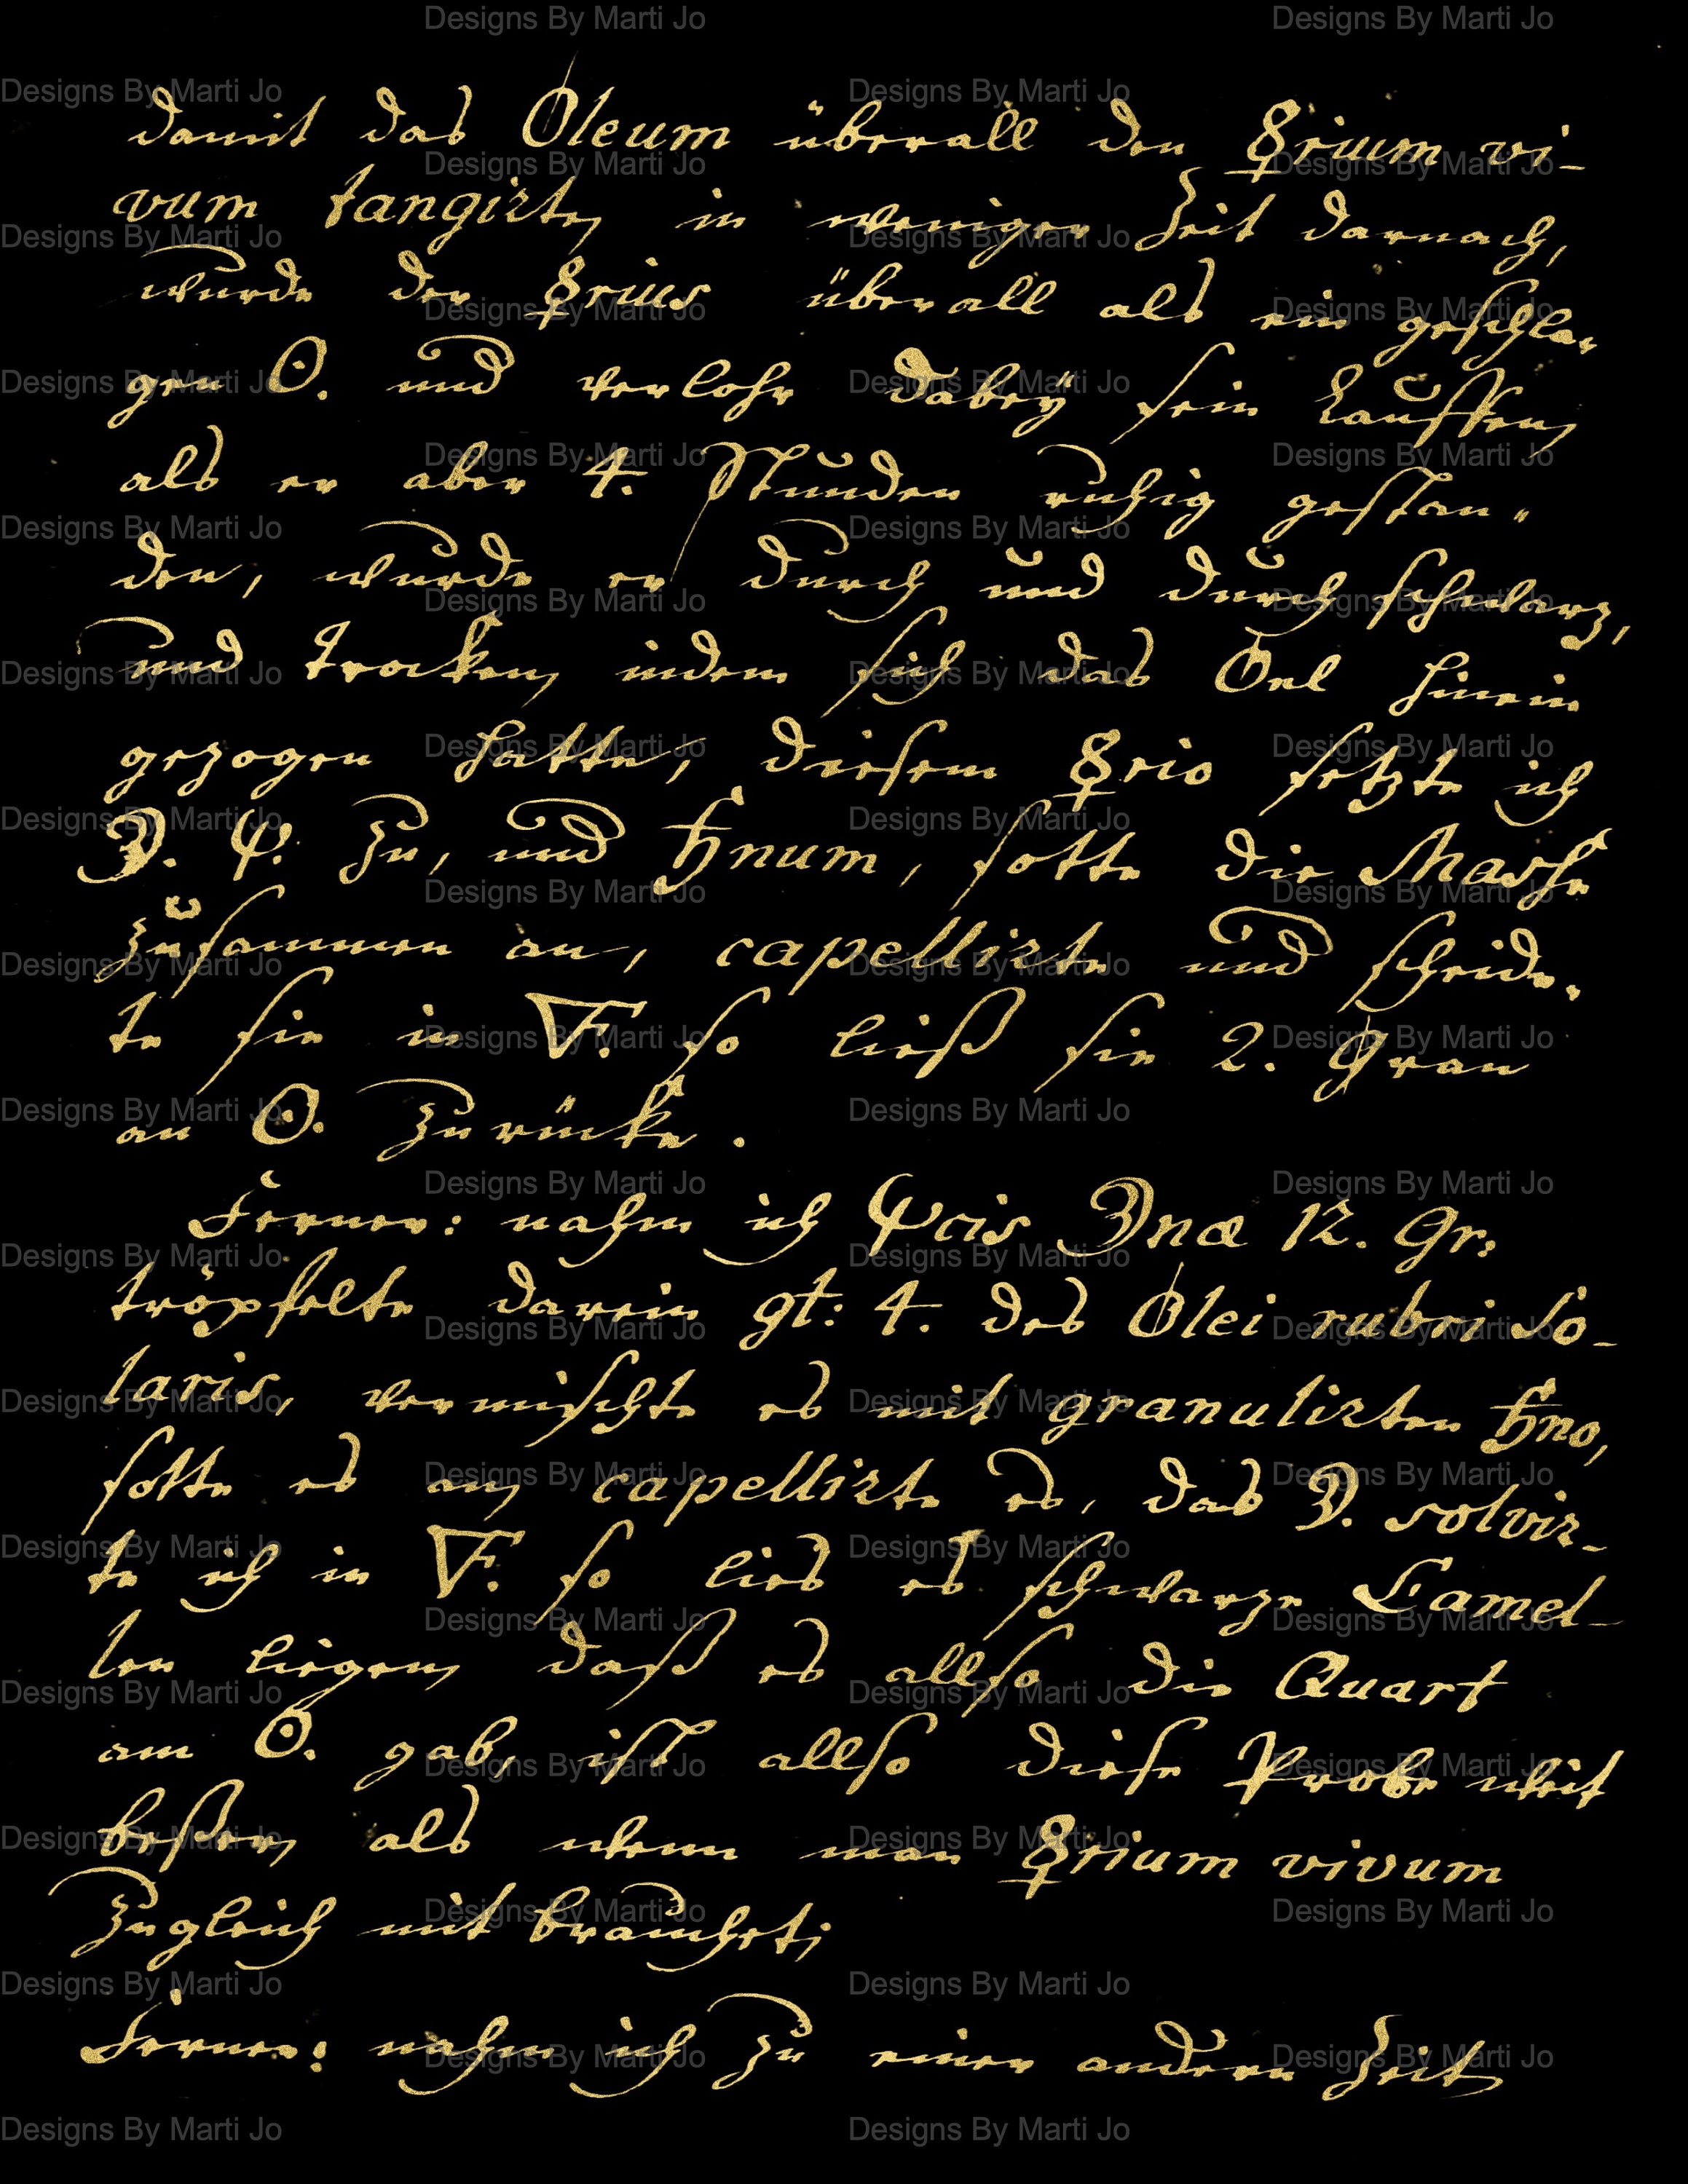 damit das Oleum überall den ☿rium vi-
vum tangirte, in weniger Zeit darnach,
wurde der ☿rius überall als ein geschla,
gen ☉. und verlohr dabeÿ sein Lauffen,
als er aber 4. Stunden ruhig gestan„
den, wurde er durch und durch schwarz,
und trocken, indem sich das Oel hinein
gezogen hatte, diesem ☿rio setzte ich
☽. ψ. zu, und ♄num, sotte die Masse
zusammen an, capellirte und scheide,
te sie in 🜅. so ließ sie 2. Gran
an ☉. zurücke.
Ferner: nahm ich ψcis ☽næ 12. gr.
tröpfelte darein gt: 4. des Olei rubri So-
laris, vermischte es mit granulirten ♄no,
sotte es an, capellirte es, das ☽. solvir-
te ich in 🜅. so lies es schwarze Lamel-
len liegen, daß es allso die Quart
am ☉. gab, ist allso diese Probe weit
beßer, als wenn man ☿rium vivum
zugleich mit brauchet;
Ferner: nahm ich zu einer andern Zeit
Designs By Marti Jo